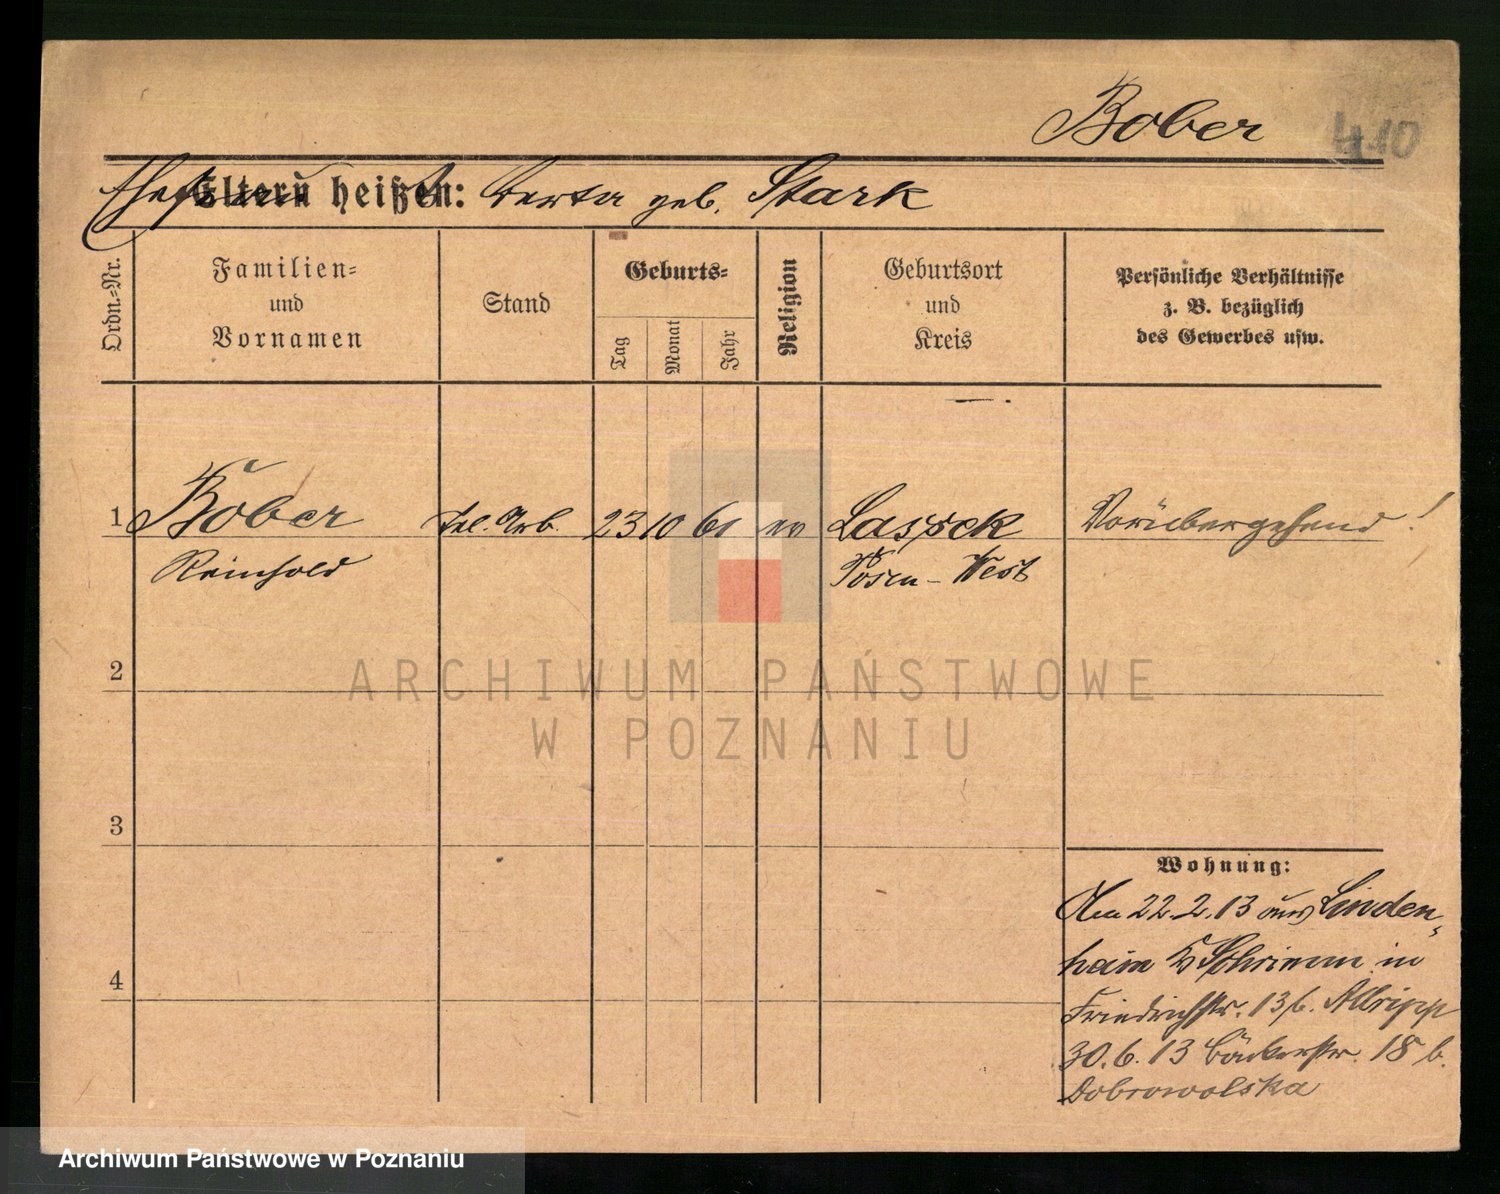 Bober
410
Eltern heißen:
Ehefrau Berta geb. Stark
Ordn.-Nr.
Familien-
und
Vornamen
Stand
Geburts-
Tag
Monat
Jahr
Religion
Geburtsort
und
Kreis
Persönliche Verhältnisse
z. B. bezüglich
des Gewerbes usw.
1 Bober Tel. Arb. 23 10 60 ev Lassek Vorübergehend!
Reinhold Posen-West
2
3
4
Wohnung:
Am 22.2.13 aus Linden-
heim Schrimm in
Friedrichstr. 13 b.
30.6.13 Bäckerstr. 18 b.
Dobrowolska
ARCHIWUM PAŃSTWOWE
W POZNANIU
Archiwum Państwowe w Poznaniu